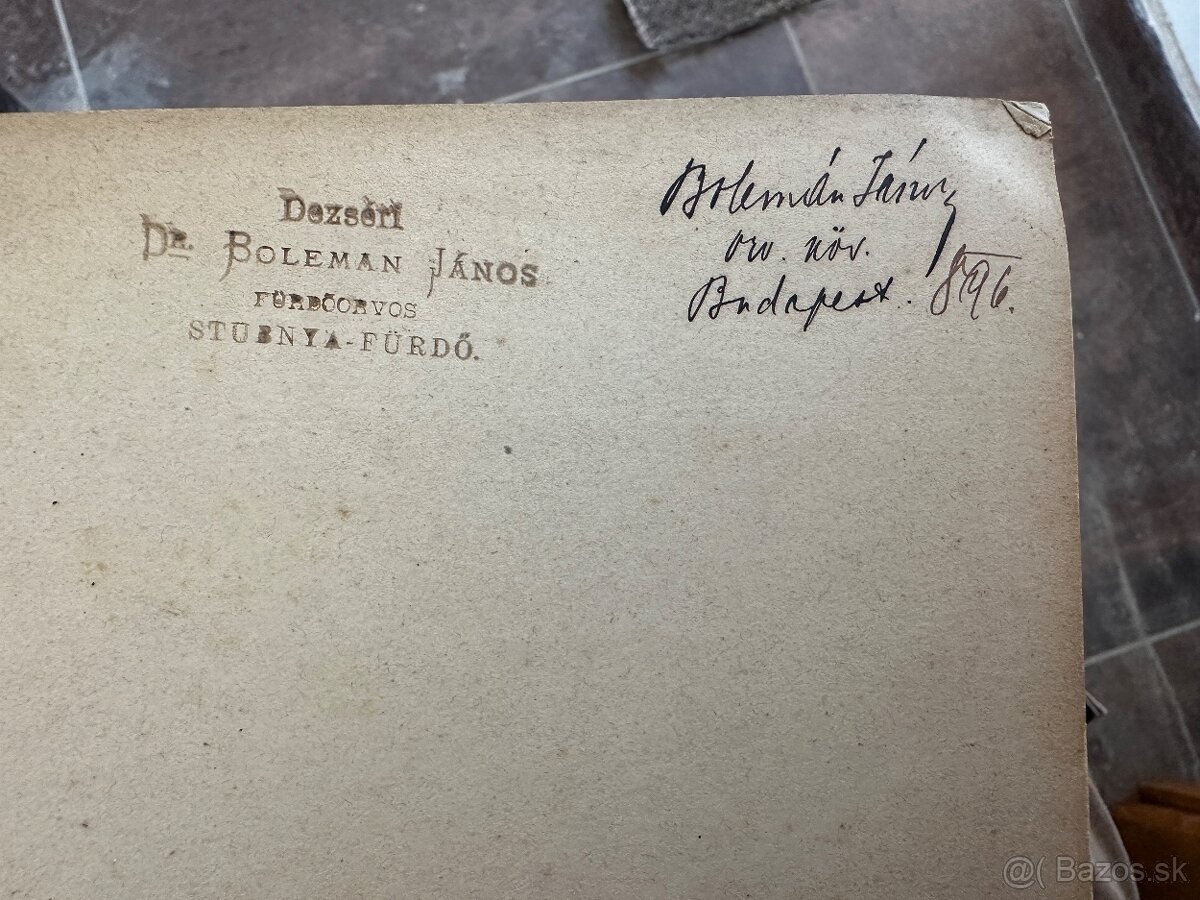 Dezséri
DR. BOLEMAN JÁNOS
FÜRDŐORVOS
STUBNYA-FÜRDŐ.
Bolemán János
orv. növ.
Budapest. 896.
@( Bazos.sk